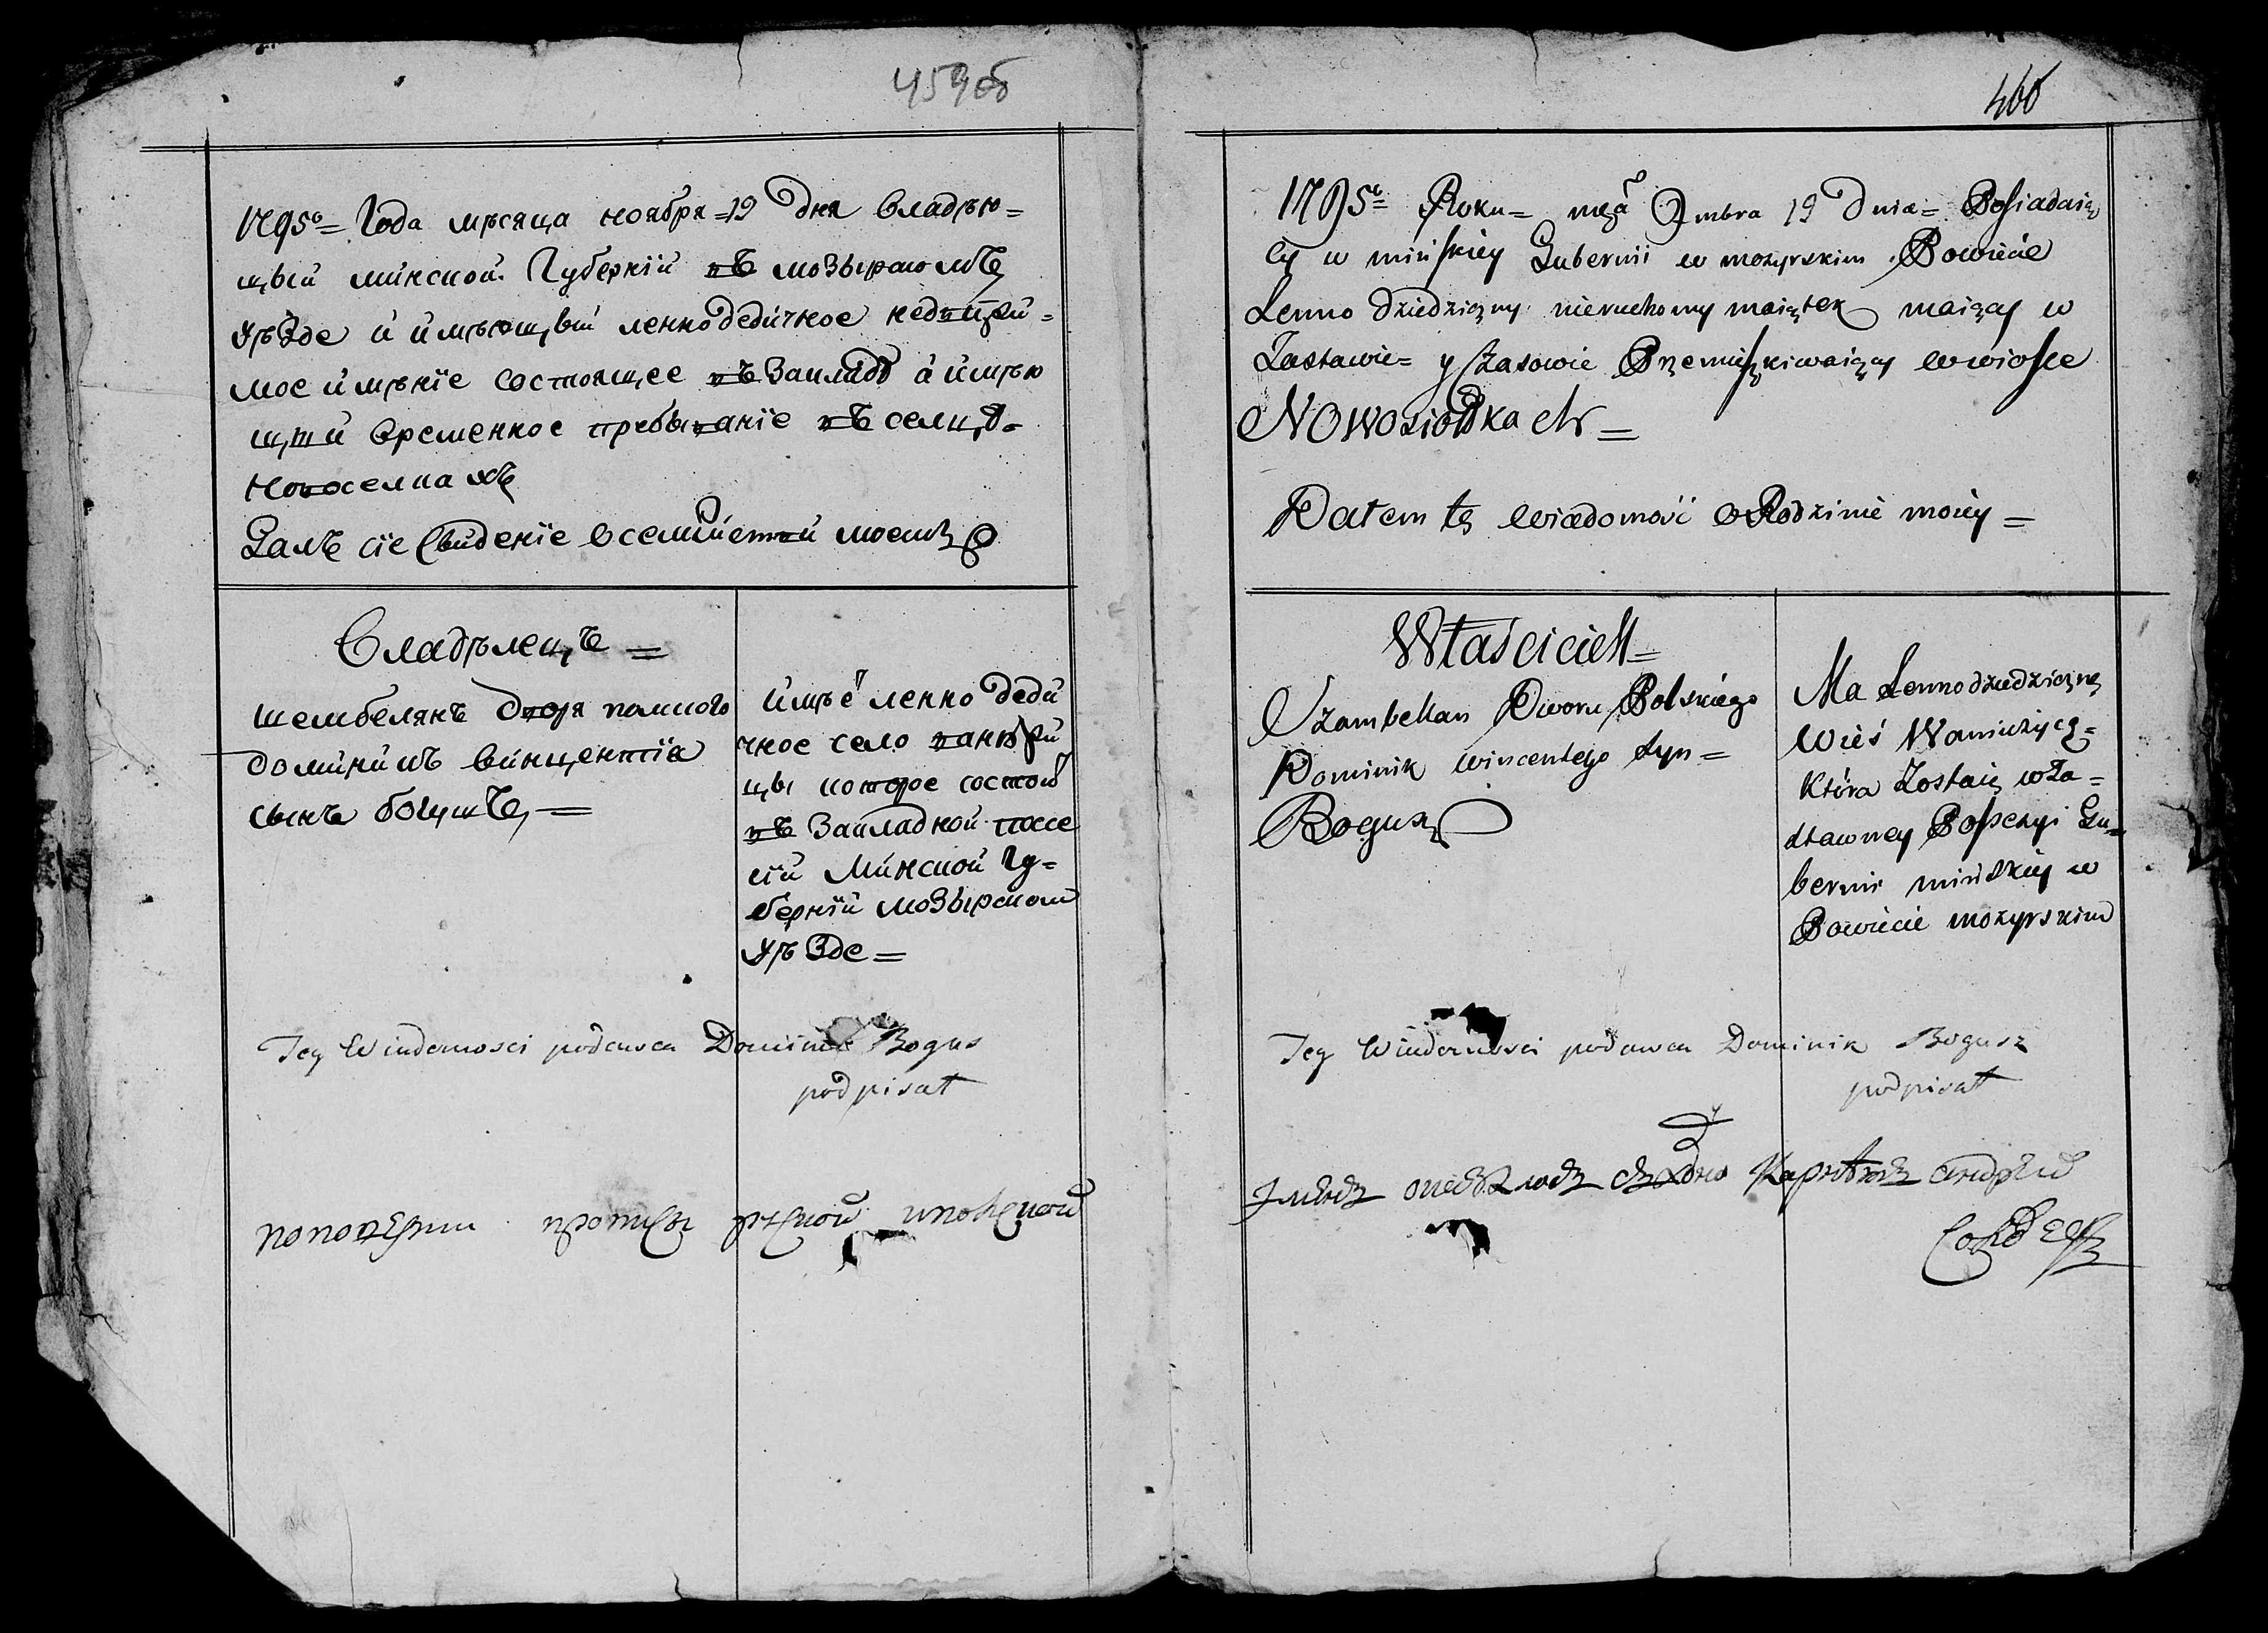 459об
1795го = Года мѣсяца ноября = 19 Дня владѣю=
щый минской Губерніи въ мозырскомъ
уѣзде и имѣющый ленно дедичное недвижи=
мое имѣніе состоящее въ закладѣ а имѣю
щій временное пребываніе въ сельцѣ=
новоселкахъ
Далъ сіе свиденіе о семействѣ моемъ
Владѣлецъ =
шембелянъ двора полского
доминикъ винцентія
сынъ богушъ =
имѣе ленно деди
чное село
цы которое состои
въ закладной поссе
сіи Минской гу=
берніи мозырском
уѣзде =
Tey Wiadomosci podawca Dominik Bogus
podpisał
460
1795o = Roku = mca 9mbra 19 Dnia = Posiadaią
cy w minskiey Gubernii w mozyrskim Powiecie
Lenno dziedziczny nieruchomy maiątek maiący w
Zastawie = y czasowie Przemieszkiwaiący w wiosce
Nowosiołkach =
Dałem tę wiadomość o Rodzinie moiey =
Właściciel =
Szambellan Dworu Polskiego
Dominik wincentego syn =
Bogusz
Ma Lenno dziedziczną
wieś Waniużycą =
która Zostaię w Za =
stawney Possessyi Gu=
bernii minskiey w
Powiecie mozyrskim
Tey Wiadomosci podawca Dominik Bogusz
podpisał